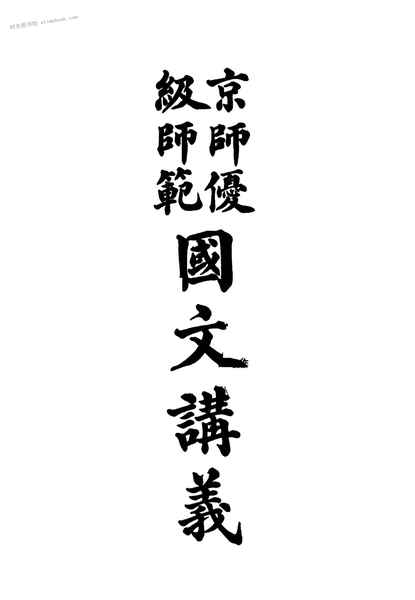 京師優
級師範
國文講義